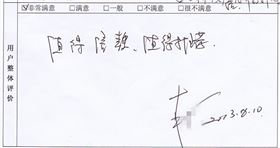 ☑非常满意 □满意 □一般 □不满意 □很不满意
用户整体评价
值得信赖、值得推荐
2013.8.10